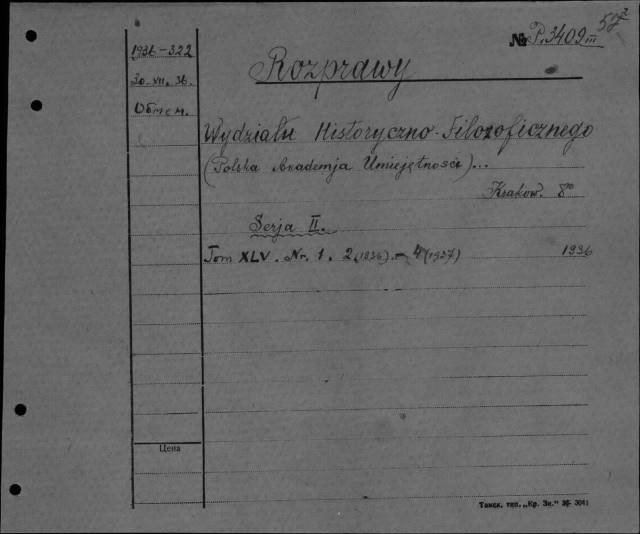 57²
№ P.3409 III
1936-322
30-VII. 36.
Обмен.
Rozprawy
Wydziału Historyczno-Filozoficznego
(Polska Akademja Umiejętności)...
Kraków. 8°
Serja II.
Tom XLV. Nr. 1. 2 (1936).- 4 (1937) 1936
Цена
Томск. тип. „Кр. Зн."